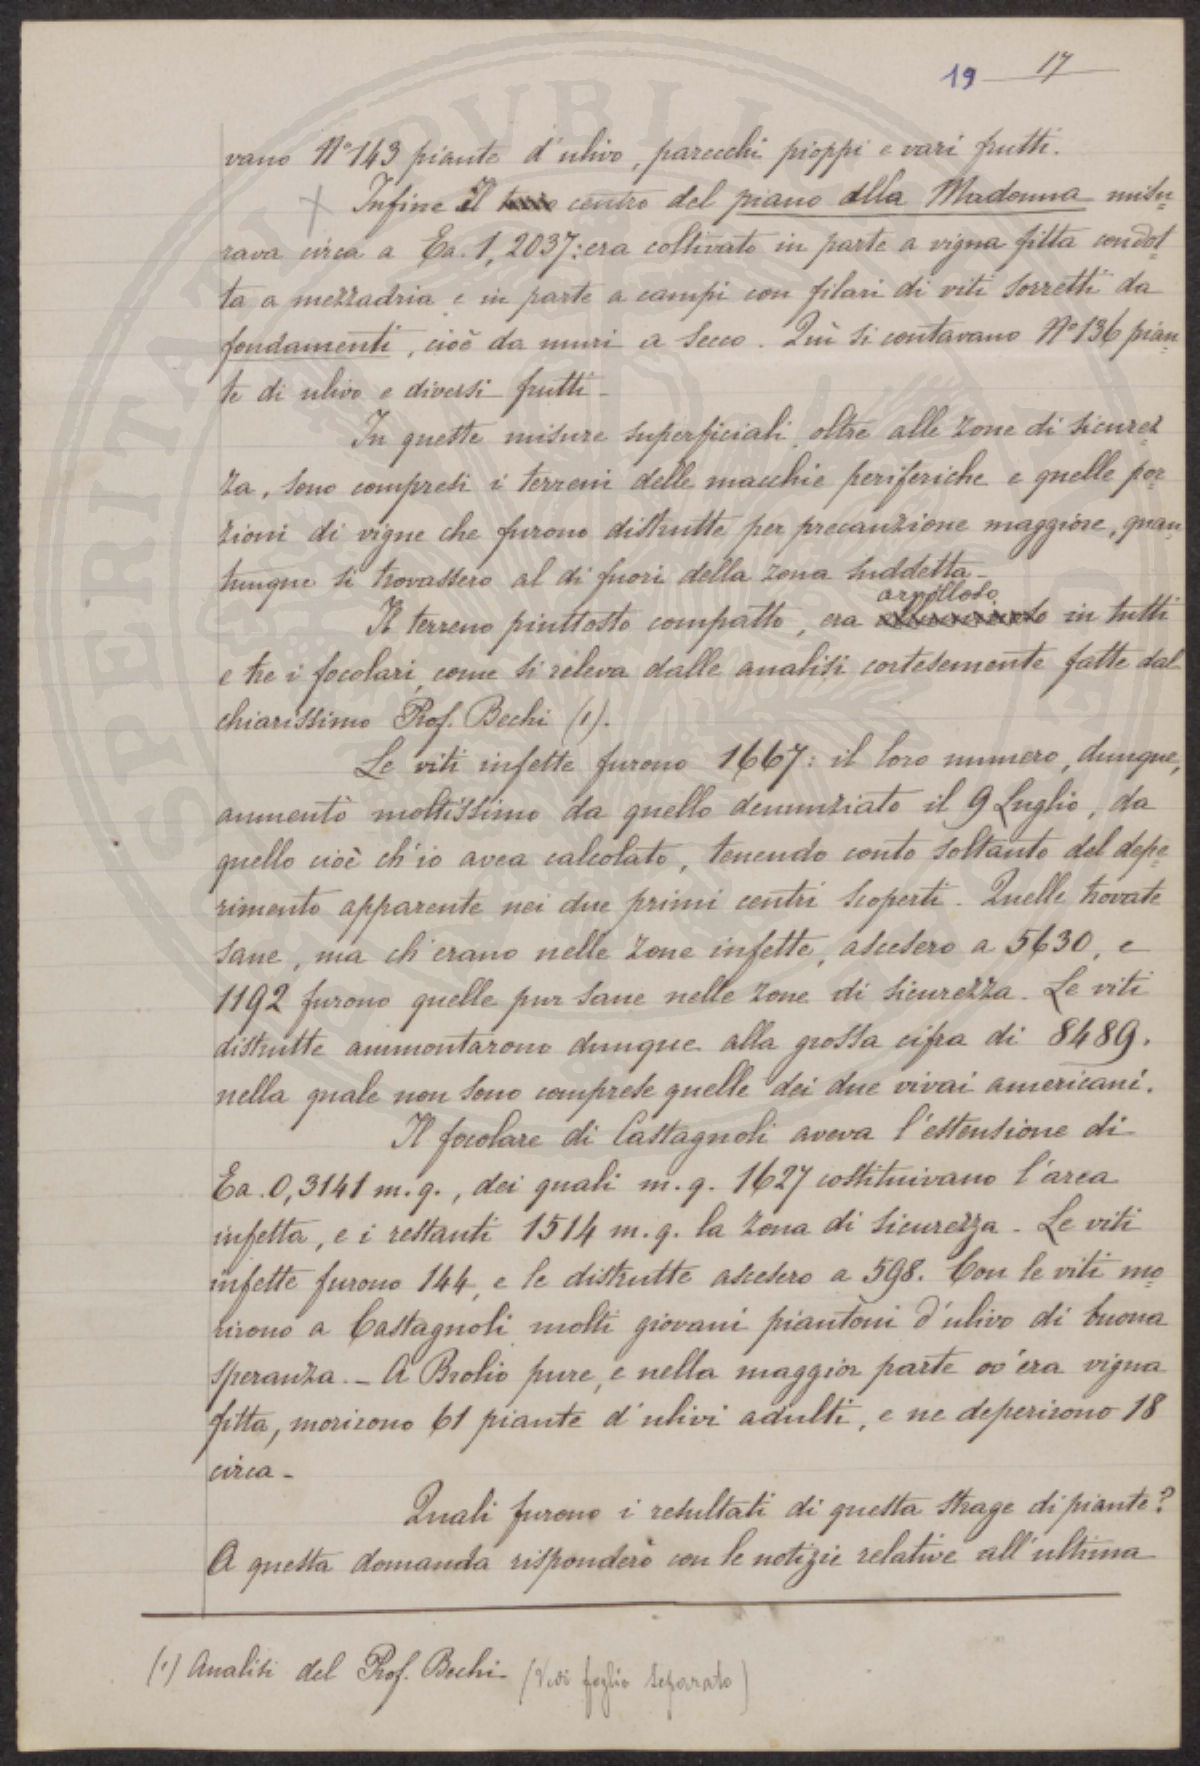 19 17
vano Nº 143 piante d'ulivo, parecchi pioppi e vari frutti.
Infine il centro del piano della Madonna misu=
rava circa a Ea. 1, 2037: era coltivato in parte a vigna fitta condot=
ta a mezzadria e in parte a campi con filari di viti sorretti da
fondamenti, cioè da muri a secco. Quì si contavano Nº 136 pian=
te di ulivo e diversi frutti.
In queste misure superficiali, oltre alle zone di sicurez=
za, sono compresi i terreni delle macchie periferiche e quelle por=
zioni di vigne che furono distrutte per precauzione maggiore, quan=
tunque si trovassero al di fuori della zona suddetta.
argilloso
Il terreno piuttosto compatto, era in tutti
e tre i focolari, come si releva dalle analisi cortesemente fatte dal
chiarissimo Prof. Bechi (1).
Le viti infette furono 1667: il loro numero, dunque,
aumentò moltissimo da quello denunziato il 9 Luglio, da
quello cioè ch'io avea calcolato, tenendo conto soltanto del depe=
rimento apparente nei due primi centri scoperti. Quelle trovate
sane, ma ch'erano nelle zone infette, ascesero a 5630, e
1192 furono quelle pur sane nelle zone di sicurezza. Le viti
distrutte ammontarono dunque alla grossa cifra di 8489.
nella quale non sono comprese quelle dei due vivai americani.
Il focolare di Castagnoli aveva l'estensione di
Ea. 0,3141 m.q., dei quali m.q. 1627 costituivano l'area
infetta, e i restanti 1514 m.q. la zona di sicurezza. Le viti
infette furono 144, e le distrutte ascesero a 598. Con le viti mo=
rirono a Castagnoli molti giovani piantoni d'ulivo di buona
speranza. _ A Brolio pure, e nella maggior parte ov'era vigna
fitta, morirono 61 piante d'ulivi adulti, e ne deperirono 18
circa _
Quali furono i resultati di questa strage di piante?
A questa domanda risponderò con le notizie relative all'ultima
(1) Analisi del Prof. Bechi (Vedi foglio separato)
SPERITATI PUBLIC